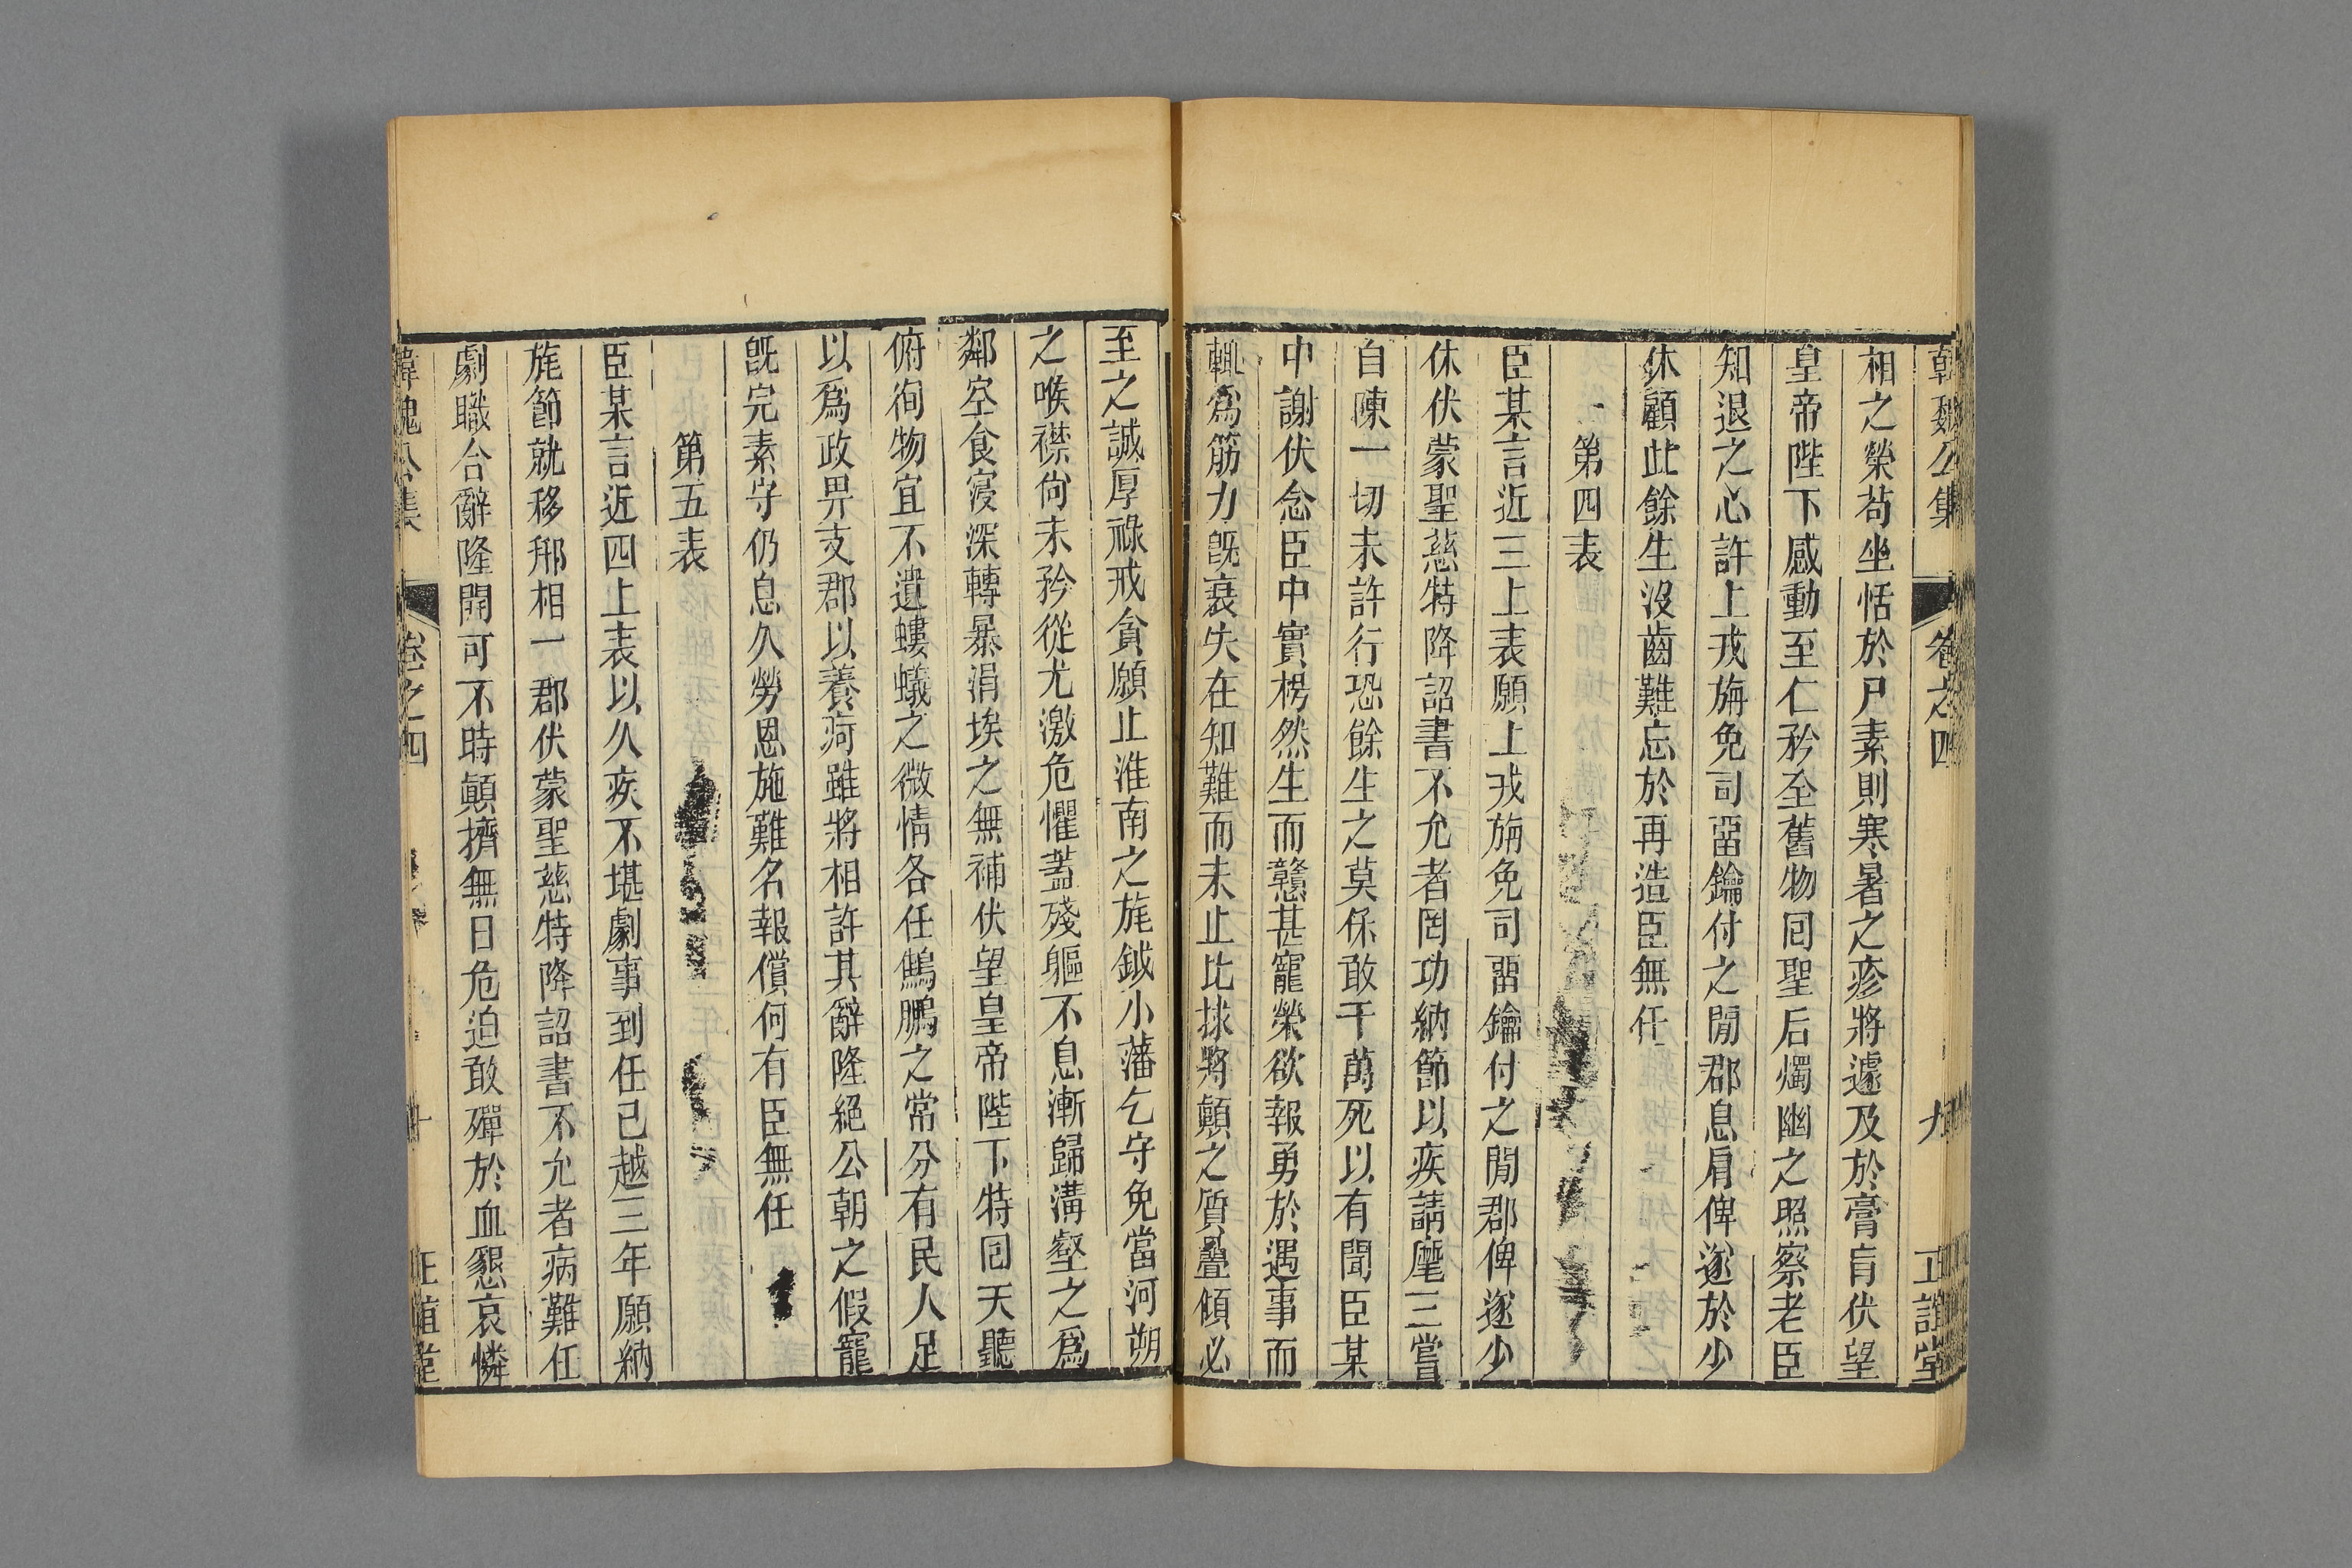 韓魏公集 卷之四 九 正誼堂
相之榮苟坐恬於尸素則寒暑之疹將遽及於膏肓伏望
皇帝陛下感動至仁矜全舊物囘聖后燭幽之照察老臣
知退之心許上戎旃免司畱鑰付之閒郡息肩俾遂於少
休顧此餘生沒齒難忘於再造臣無任
第四表
臣某言近三上表願上戎旃免司畱鑰付之閒郡俾遂少
休伏蒙聖慈特降詔書不允者罔功納節以疾請麾三嘗
自陳一切未許行恐餘生之莫保敢干萬死以有聞臣某
中謝伏念臣中實楞然生而戇甚寵榮欲報勇於遇事而
輒爲筋力旣衰失在知難而未止比捄將顛之質曡傾必
至之誠厚祿戒貪願止淮南之旄鉞小藩乞守免當河朔
之喉襟尙未矜從尤激危懼蓋殘軀不息漸歸溝壑之爲
鄰空食寖深轉暴涓埃之無補伏望皇帝陛下特囘天聽
俯徇物宜不遺螻蟻之微情各任鷦鵬之常分有民人足
以爲政畀支郡以養痾雖將相許其辭隆絕公朝之假寵
旣完素守仍息久勞恩施難名報償何有臣無任
第五表
臣某言近四上表以久疾不堪劇事到任已越三年願納
旄節就移邢相一郡伏蒙聖慈特降詔書不允者病難任
劇職合辭隆開可不時顛擠無日危迫敢殫於血懇哀憐
韓魏公集 卷之四 十 正誼堂